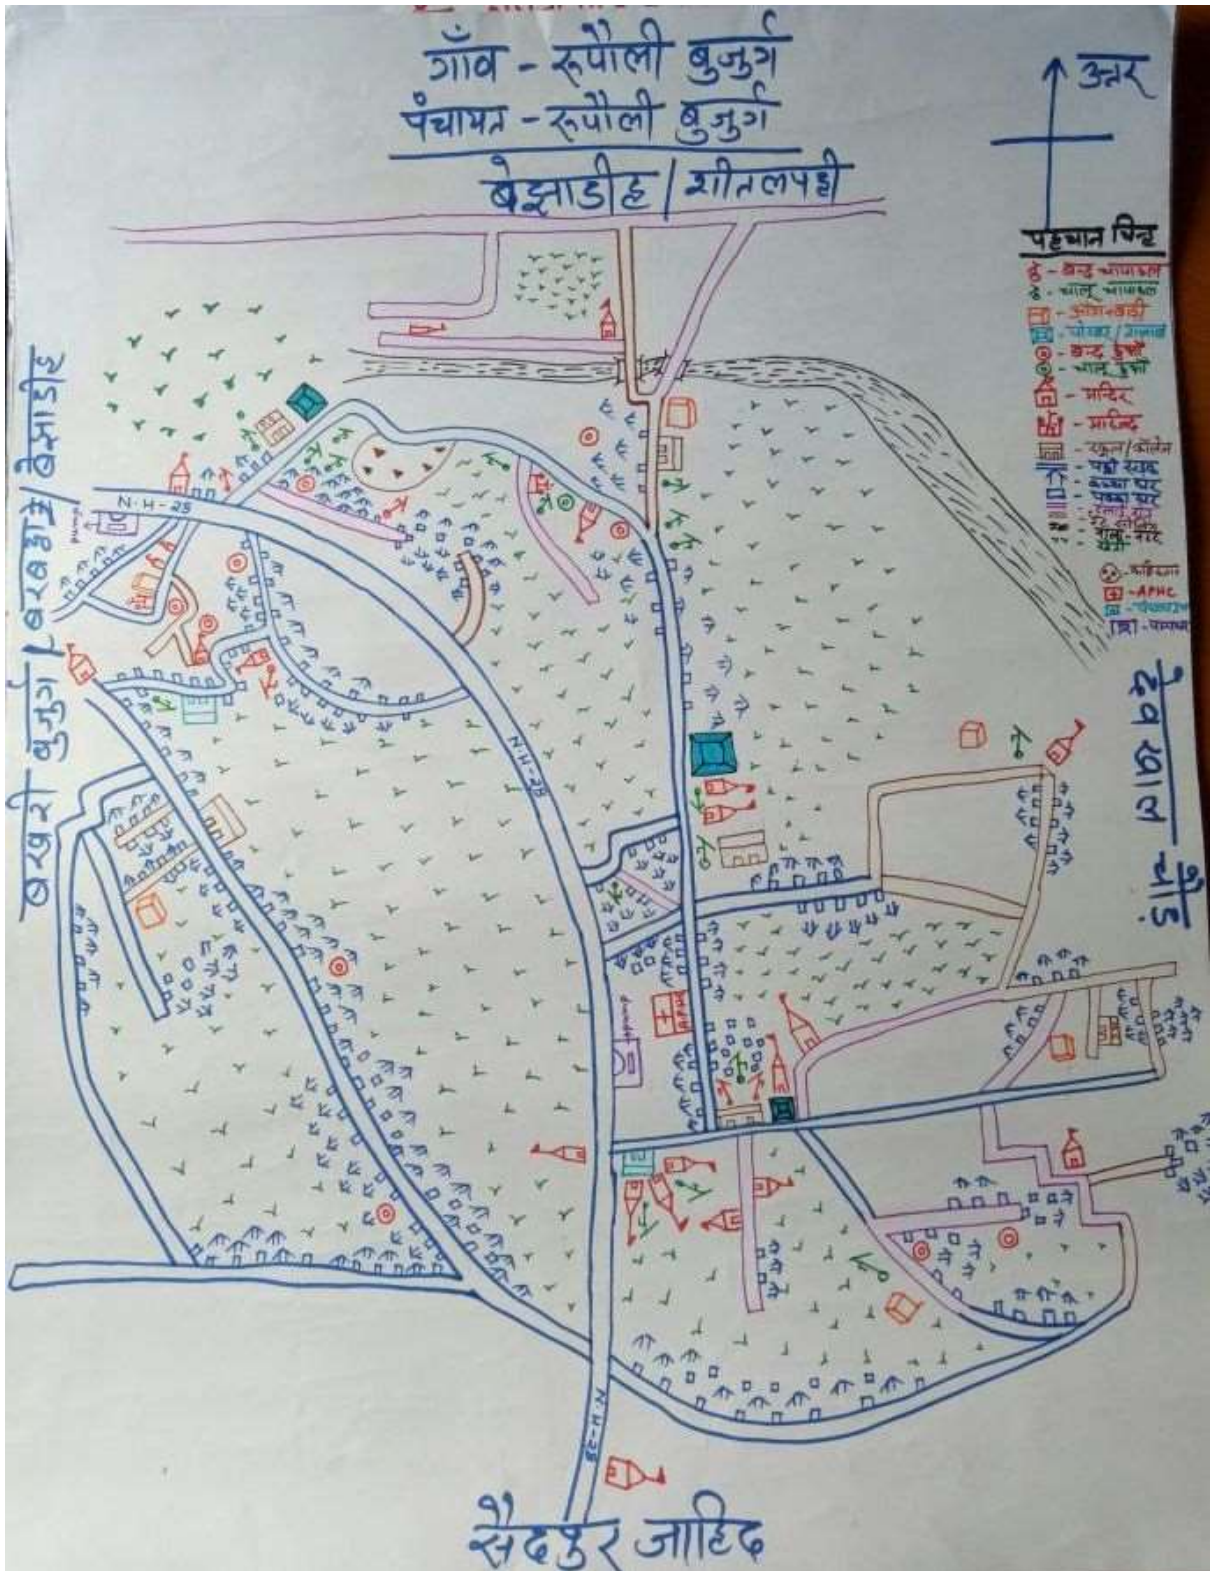 गाँव - रूपौली बुजुर्ग
पंचायत - रूपौली बुजुर्ग
बेझाडीह / शीतलपट्टी
उत्तर
पहचान चिन्ह
- बन्द चापाकल
- चालू चापाकल
- आंगनबाड़ी
- पोखर / तालाब
- बन्द कुआँ
- चालू कुआँ
- मन्दिर
- मस्जिद
- स्कूल/कॉलेज
- पक्की सड़क
- कच्चा घर
- पक्का घर
- कब्रिस्तान
- APHC
बखरी बुजुर्ग / बरबट्टा / बेझाडीह
N.H-28
pump
N.H-28
देवखाल चौड़
APHC
pump
N.H-28
सैदपुर जाहिद